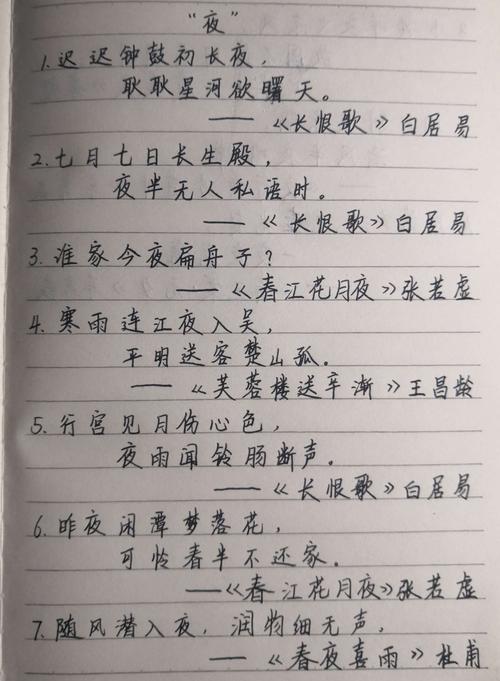 “夜”
1.迟迟钟鼓初长夜，
耿耿星河欲曙天。
——《长恨歌》白居易
2.七月七日长生殿，
夜半无人私语时。
——《长恨歌》白居易
3.谁家今夜扁舟子？
——《春江花月夜》张若虚
4.寒雨连江夜入吴，
平明送客楚山孤。
——《芙蓉楼送辛渐》王昌龄
5.行宫见月伤心色，
夜雨闻铃肠断声。
——《长恨歌》白居易
6.昨夜闲潭梦落花，
可怜春半不还家。
——《春江花月夜》张若虚
7.随风潜入夜，润物细无声，
——《春夜喜雨》杜甫